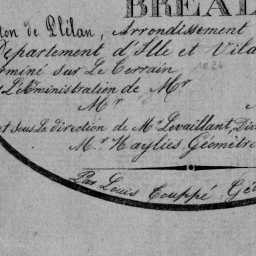 BRÉAL
ton de Plélan, Arrondissement
Département d'Ille et Vila
erminé sur Le Terrain
1824
L'Administration de Mr
Mr
et sous La direction de Mr Levaillant, Dir
Mr Haylies Géomètre
Par Louis Touppé Géo